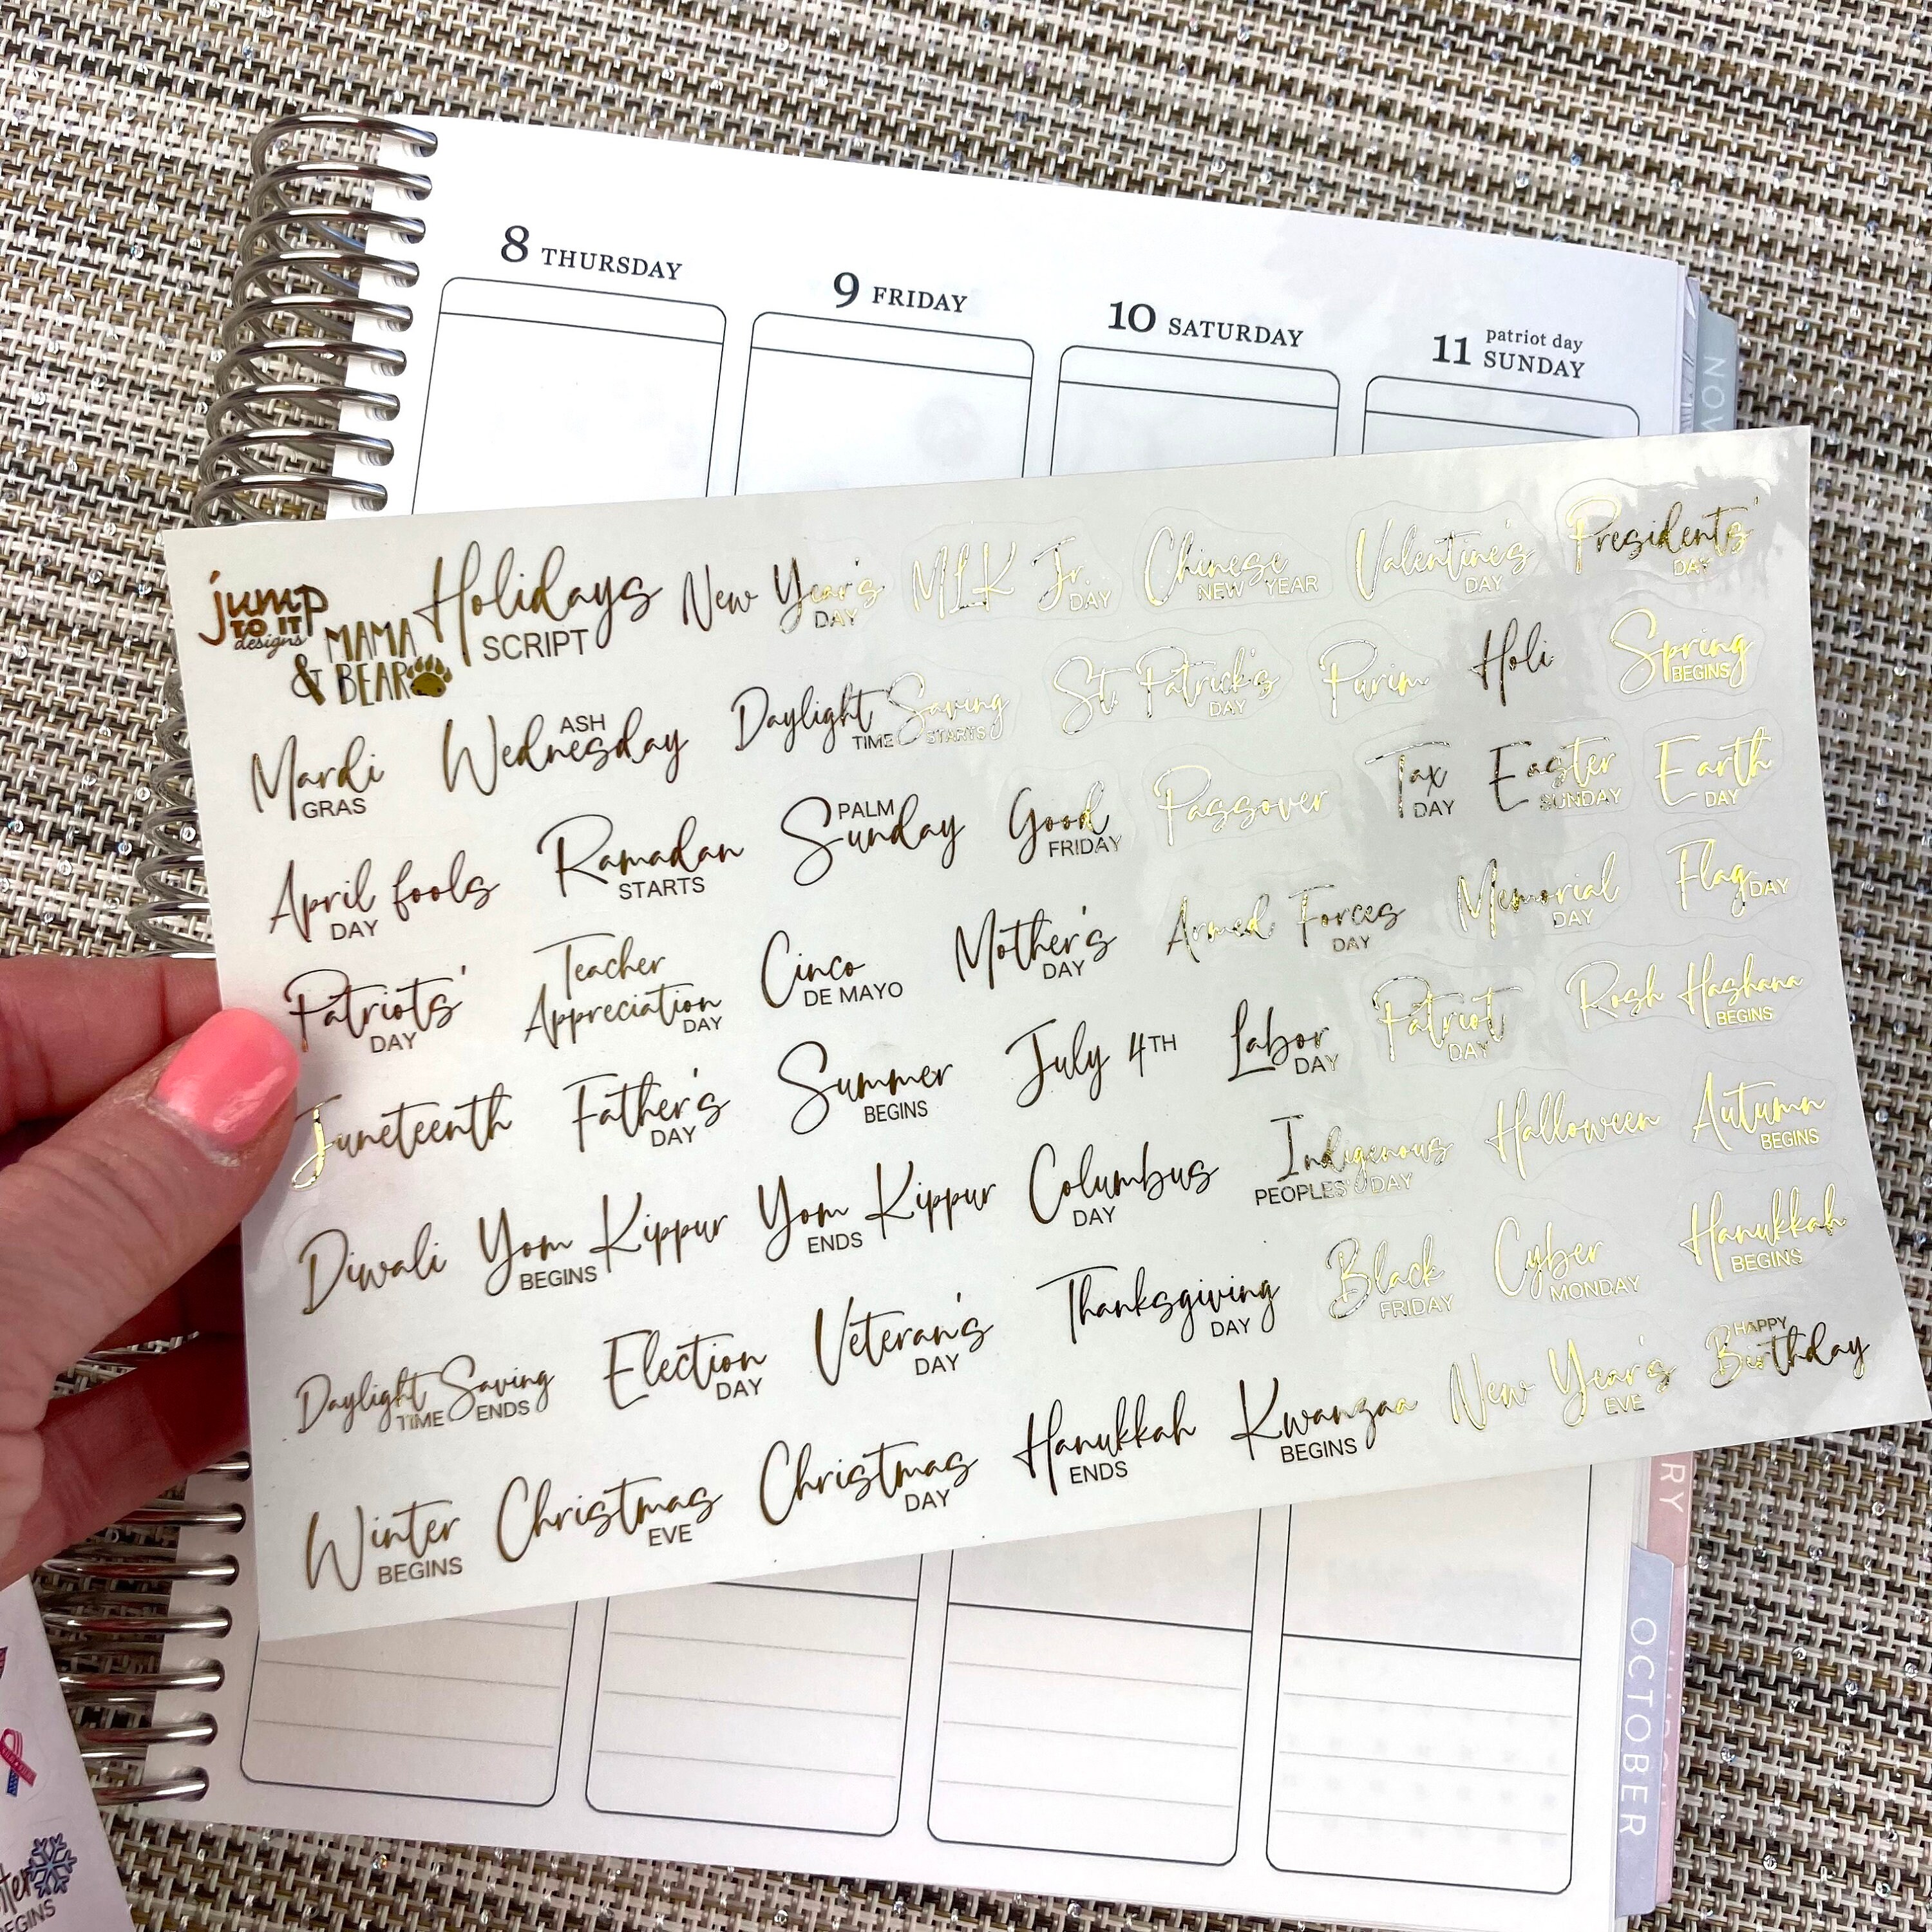 8 THURSDAY
9 FRIDAY
10 SATURDAY
11 patriot day SUNDAY
NOV
jump TO IT designs
MAMA & BEAR
Holidays SCRIPT
New Year's DAY
MLK Jr. DAY
Chinese NEW YEAR
Valentine's DAY
Presidents' DAY
Mardi GRAS
ASH Wednesday
Daylight Saving TIME STARTS
St. Patrick's DAY
Purim
Holi
Spring BEGINS
April fools DAY
Ramadan STARTS
PALM Sunday
Good FRIDAY
Passover
Tax DAY
Easter SUNDAY
Earth DAY
Patriots' DAY
Teacher Appreciation DAY
Cinco DE MAYO
Mother's DAY
Armed Forces DAY
Memorial DAY
Flag DAY
Juneteenth
Father's DAY
Summer BEGINS
July 4TH
Labor DAY
Patriot DAY
Rosh Hashana BEGINS
Diwali
Yom Kippur BEGINS
Yom Kippur ENDS
Columbus DAY
Indigenous PEOPLES' DAY
Halloween
Autumn BEGINS
Daylight Saving TIME ENDS
Election DAY
Veteran's DAY
Thanksgiving DAY
Black FRIDAY
Cyber MONDAY
Hanukkah BEGINS
Winter BEGINS
Christmas EVE
Christmas DAY
Hanukkah ENDS
Kwanzaa BEGINS
New Year's EVE
HAPPY Birthday
RY
OCTOBER